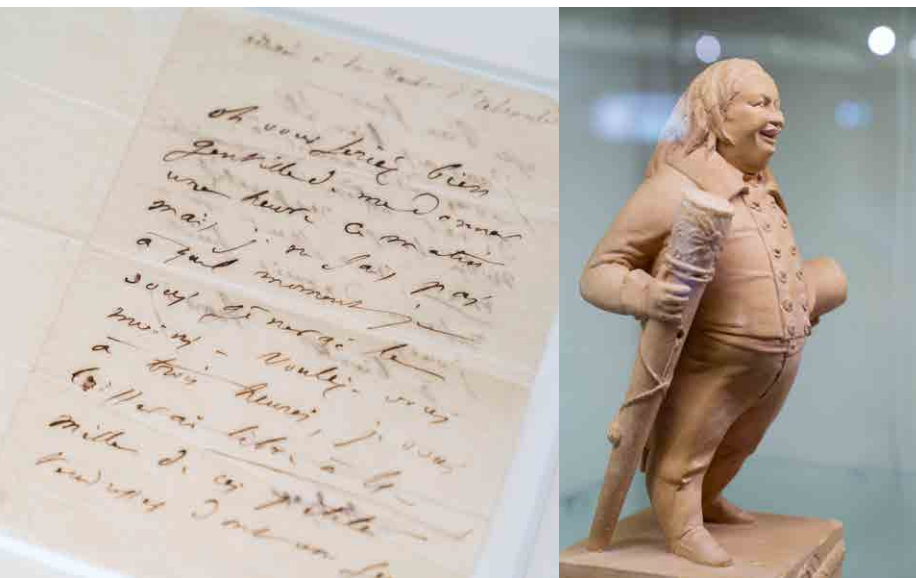 oh vous seriez bien
gentille de me donner
une heure ce matin
mais je ne sais pas
à quel moment je
vous gênerai le
moins - voulez vous
à trois heures, je vous
laisserai libre à
mille de ces petites
tendresses dont on